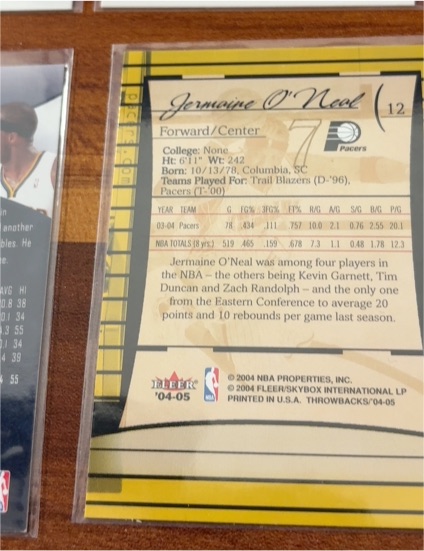 in
another
bles. He
e.
AVG HI
0.8 38
0.1 34
.3 55
0.1 34
.4 39
55
Jermaine O'Neal
12
Forward/Center
7
Pacers
College: None
Ht: 6'11" Wt: 242
Born: 10/13/78, Columbia, SC
Teams Played For: Trail Blazers (D-'96),
Pacers (T-'00)
YEAR TEAM G FG% 3FG% FT% R/G A/G S/G B/G P/G
03-04 Pacers 78 .434 .111 .757 10.0 2.1 0.76 2.55 20.1
NBA TOTALS (8 yrs.) 519 .465 .159 .678 7.3 1.1 0.48 1.78 12.3
Jermaine O'Neal was among four players in
the NBA – the others being Kevin Garnett, Tim
Duncan and Zach Randolph – and the only one
from the Eastern Conference to average 20
points and 10 rebounds per game last season.
FLEER
'04-05
© 2004 NBA PROPERTIES, INC.
© 2004 FLEER/SKYBOX INTERNATIONAL LP
PRINTED IN U.S.A. THROWBACKS/'04-05